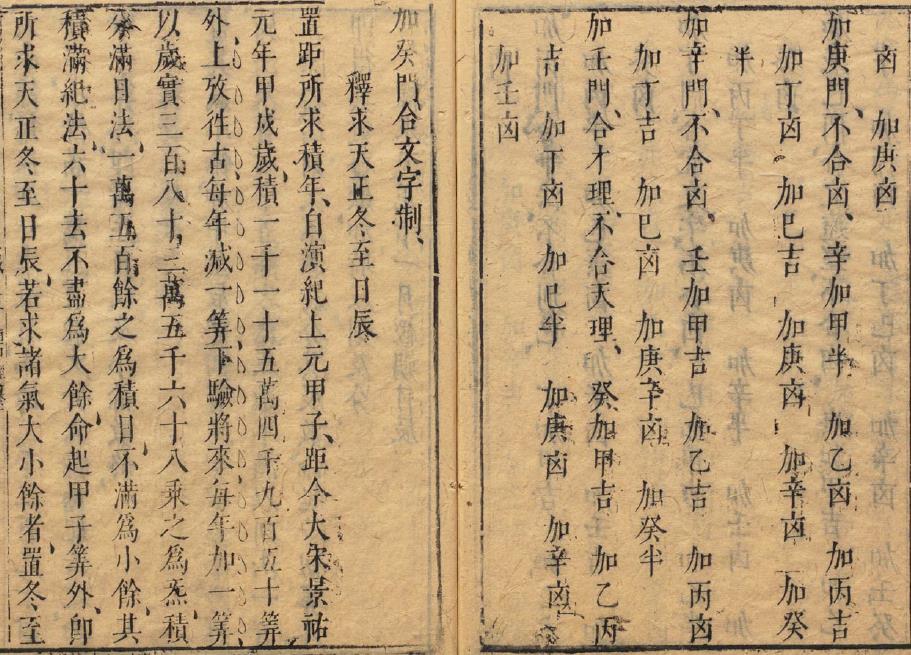 卤 加庚卤
加庚門、不合卤、辛加甲半 加乙卤 加丙吉
加丁卤 加巳吉 加庚卤 加辛卤 加癸
半
加辛門、不合卤、 壬加甲吉 加乙吉 加丙卤
加丁吉 加巳卤 加庚辛卤 加癸半
加壬門、合才理、不合天理、癸加甲吉 加乙丙
吉 加丁卤 加巳半 加庚卤 加辛卤
加壬卤
加癸門、合文字制、
釋求天正冬至日辰
置距所求積年、自演紀上元甲子、距今大宋景祐
元年甲戌歲、積一千一十五萬四千九百五十筭
外、上攷徃古每年減一筭、下驗將來每年加一筭
以歲實三百八十三萬五千六十八乘之爲炁積
分滿日法一萬五百餘之爲積日、不滿爲小餘、其
積滿紀法、六十去不盡爲大餘、命起甲子筭外、卽
所求天正冬至日辰、若求諸氣大小餘者置冬至